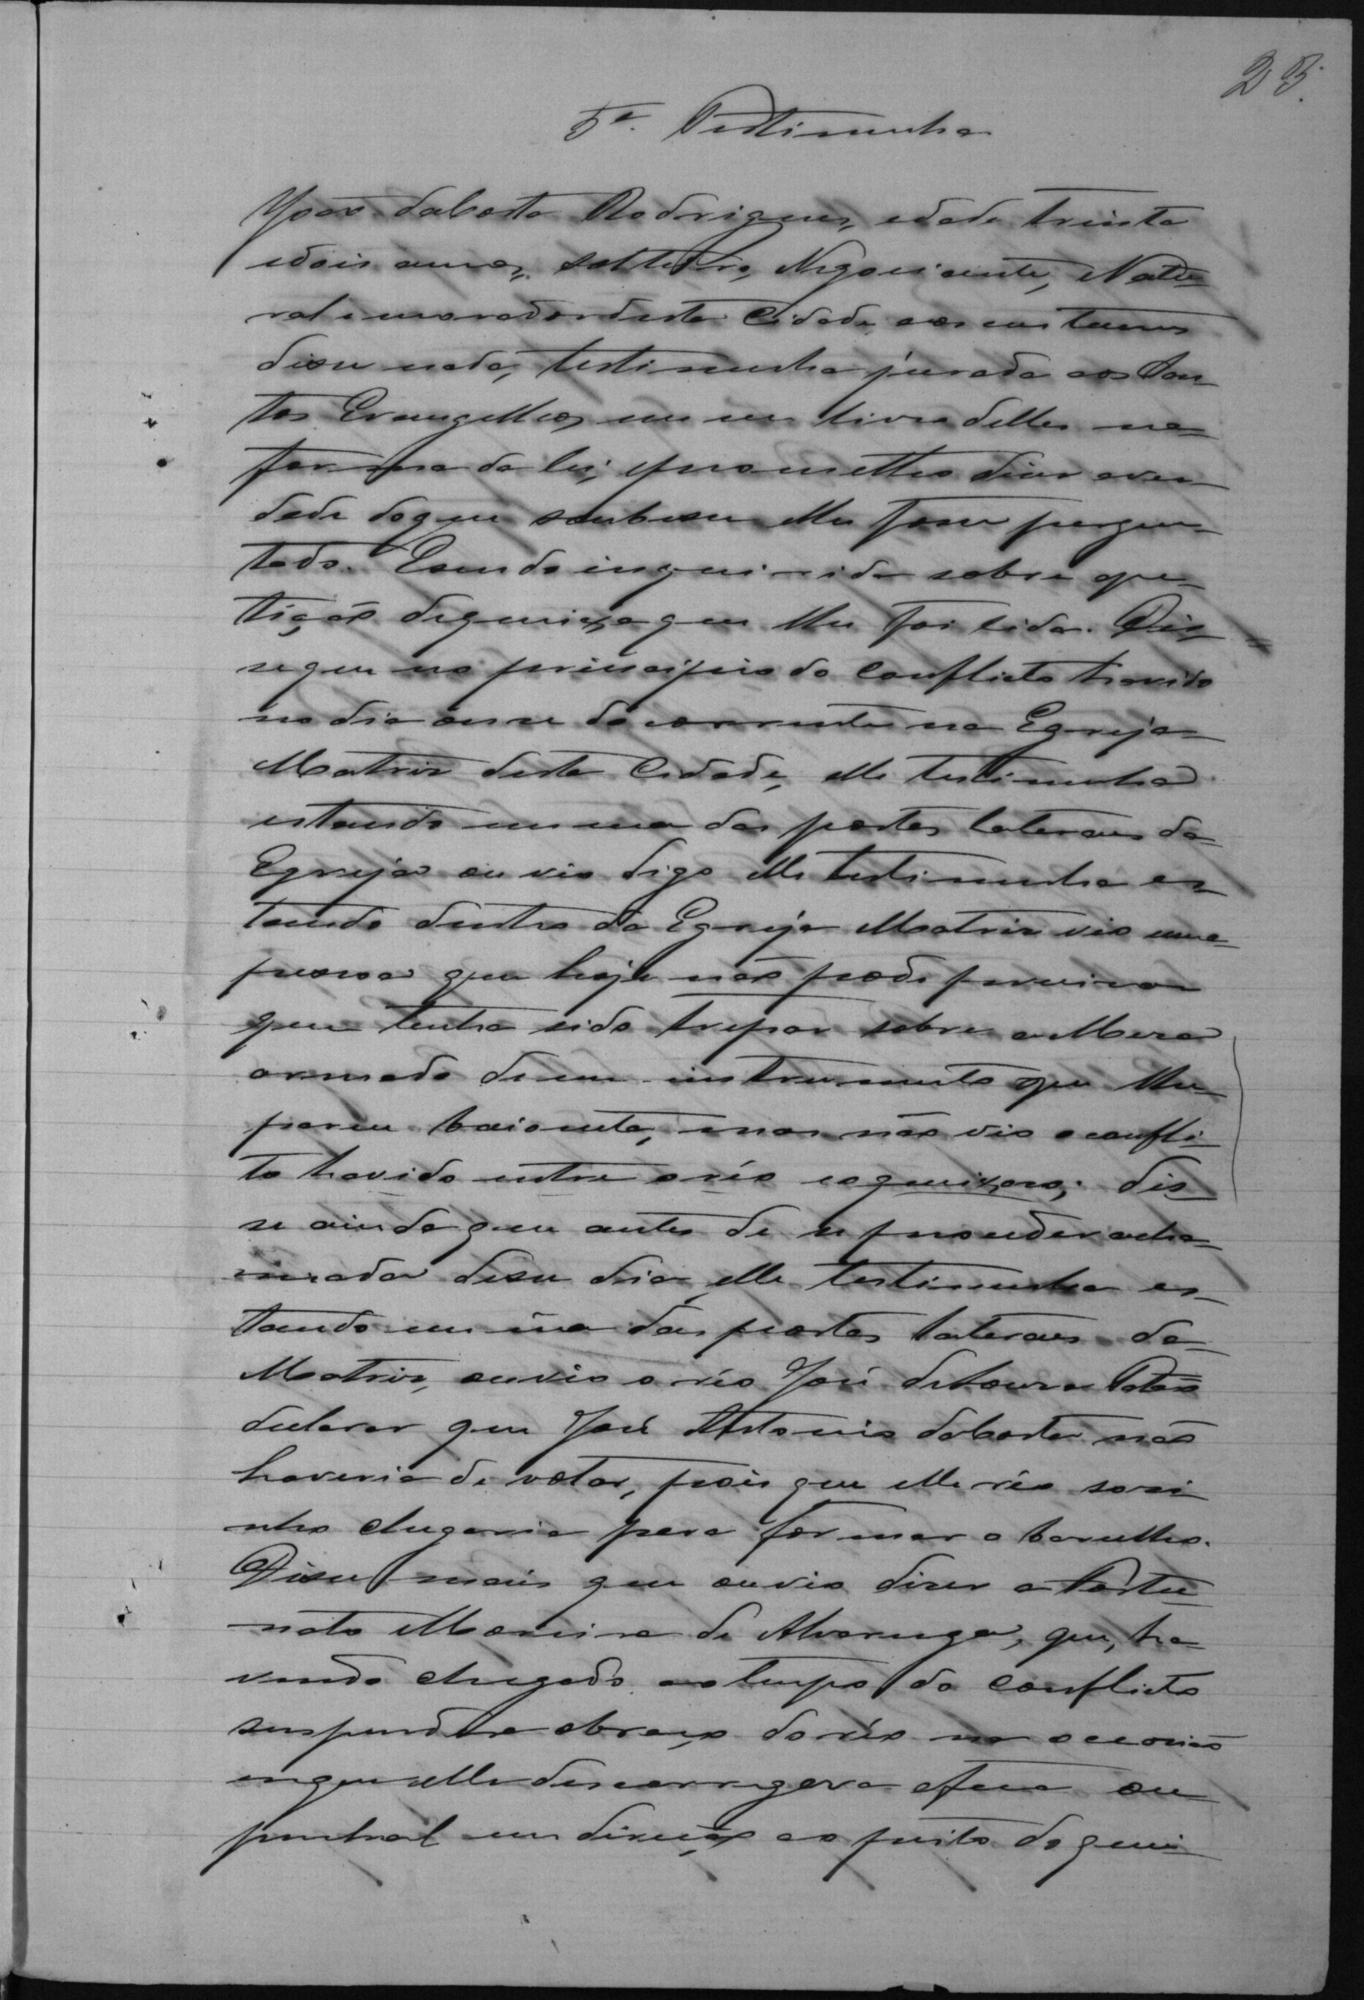 25.
5ª. Testimunha
João daCosta Rodrigues, edade trinta
edois annos, solteiro, Negociante, Natu-
ral e morador desta Cidade, aos custumes
disse nada, testimunha jurada aos San-
tos Evangelhos, em um livro delles na
forma da lei, eprometteo dizer aver-
dade doque soubesse elhe fosse pergun-
tado. Esendo inquirida sobre ape-
tição dequeixa, que lhe foi lida. Dis-
seque no principio do conflicto havido
no dia onze do corrente na Egreja
Matriz desta Cidade, elle testimunha
estando em uma das portas lateraes da
Egreja ouvio digo elle testimunha es-
tando dentro da Egreja Matriz vio uma
pessoa que hoje não pode precisar
quem tenha sido trepar sobre a Meza
armado de um instrumento que lhe
pareceu baioneta, mas não vio o confli-
to havido entre o réo e oqueixoso; dis-
se ainda que antes de se proceder acha-
mada desse dia, elle testimunha es-
tando em úa das portas lateraes da
Matriz, ouvio o réo José de Souza
declarar que José Antonio daCosta não
haveria de votar, pois que elle réo sosi-
nho chegaria para formar o barulho.
Disse mais que ouvio dizer a Fortu-
nato Moreira de Alvarenga, que, ha-
vendo chegado ao tempo do conflicto
suspendera obraço do réo na occasião
emque elle descarregava afaca ou
punhal em direção ao peito do quei-